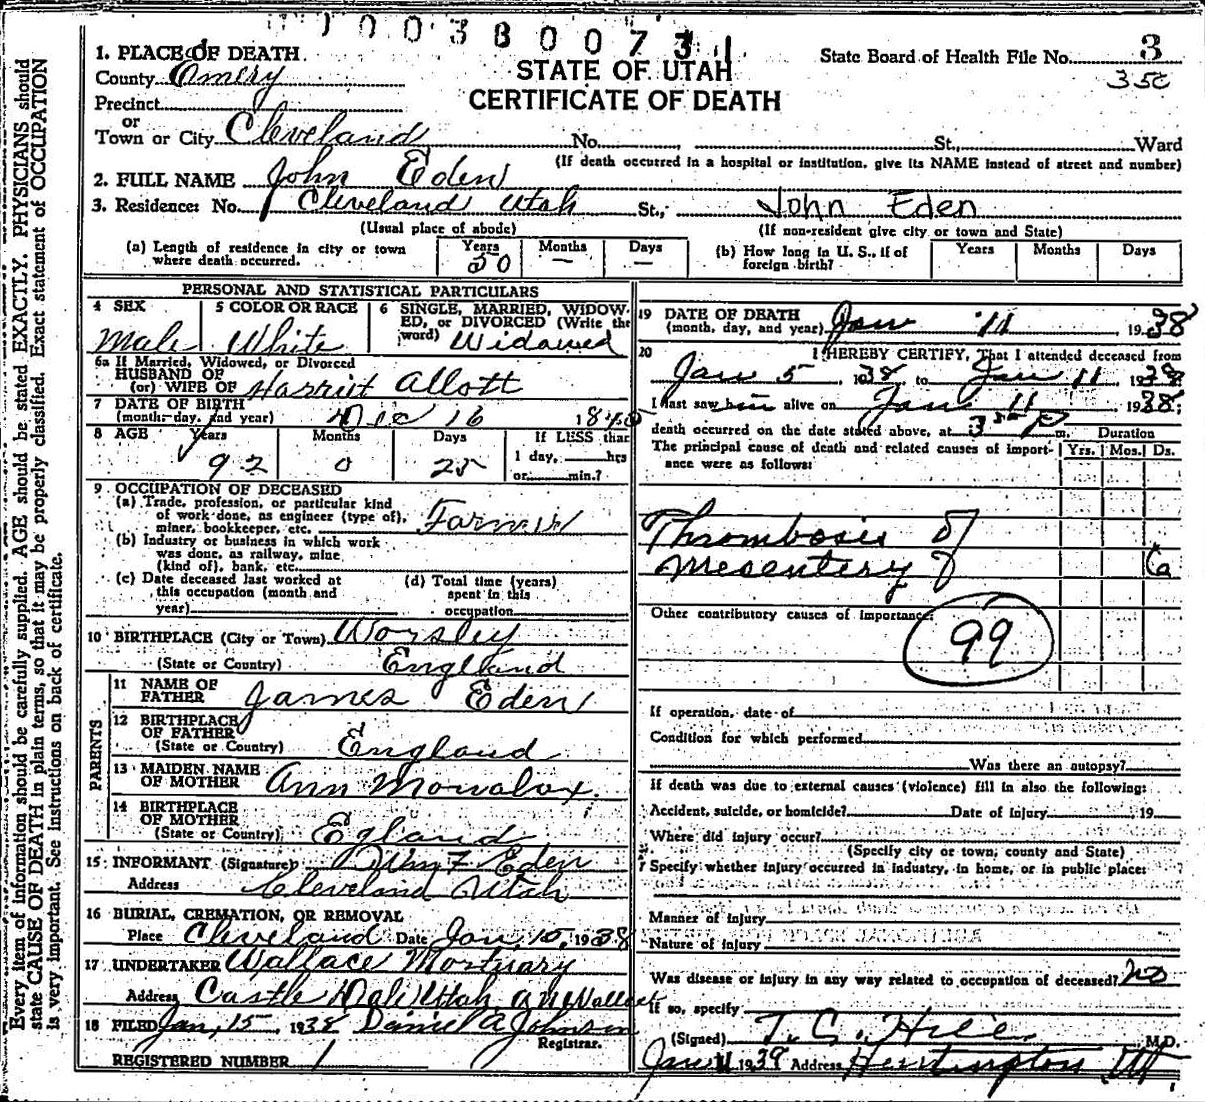 1003800731
STATE OF UTAH
CERTIFICATE OF DEATH
State Board of Health File No. 3
350
1. PLACE OF DEATH
County Emery
Precinct
or
Town or City Cleveland No. , St., Ward
(If death occurred in a hospital or institution, give its NAME instead of street and number)
2. FULL NAME John Eden
3. Residence: No. Cleveland Utah St., John Eden
(Usual place of abode) (If non-resident give city or town and State)
(a) Length of residence in city or town where death occurred. Years 50 Months — Days —
(b) How long in U. S., if of foreign birth? Years Months Days
PERSONAL AND STATISTICAL PARTICULARS
4 SEX Male
5 COLOR OR RACE White
6 SINGLE, MARRIED, WIDOWED, or DIVORCED (Write the word) Widowed
6a If Married, Widowed, or Divorced
HUSBAND OF
(or) WIFE OF Harriet Allott
7 DATE OF BIRTH
(month, day, and year) Dec 16 18
8 AGE Years 92 Months 0 Days 25 If LESS than 1 day, hrs or min.?
9. OCCUPATION OF DECEASED
(a) Trade, profession, or particular kind of work done, as engineer (type of), miner, bookkeeper, etc. Farmer
(b) Industry or business in which work was done, as railway, mine (kind of), bank, etc.
(c) Date deceased last worked at this occupation (month and year)
(d) Total time (years) spent in this occupation
10 BIRTHPLACE (City or Town) Worsley
(State or Country) England
PARENTS
11 NAME OF FATHER James Eden
12 BIRTHPLACE OF FATHER
(State or Country) England
13 MAIDEN NAME OF MOTHER Ann
14 BIRTHPLACE OF MOTHER
(State or Country) Egland
15 INFORMANT (Signature) Wm F Eden
Address Cleveland Utah
16 BURIAL, CREMATION, OR REMOVAL
Place Cleveland Date Jan, 15, 1938
17 UNDERTAKER Wallace Mortuary
Address Castle Dale Utah
18 FILED Jan, 15, 1938 Daniel A Johnson
Registrar.
REGISTERED NUMBER 1
19 DATE OF DEATH
(month, day, and year) Jan 11 1938
20 I HEREBY CERTIFY, That I attended deceased from
Jan 5, 1938 to Jan 11 1938
I last saw him alive on Jan 11 1938;
death occurred on the date stated above, at 3 P m. Duration
The principal cause of death and related causes of importance were as follows: Yrs. Mos. Ds.
Thrombosis of
mesentery 6
Other contributory causes of importance:
99
If operation, date of
Condition for which performed
Was there an autopsy?
If death was due to external causes (violence) fill in also the following:
Accident, suicide, or homicide? Date of injury 19
Where did injury occur?
(Specify city or town, county and State)
Specify whether injury occurred in industry, in home, or in public place:
Manner of injury
Nature of injury
Was disease or injury in any way related to occupation of deceased? no
If so, specify
(Signed) T. C. Hill M.D.
Jan 11 1939 Address Huntington Ut
Every item of information should be carefully supplied. AGE should be stated EXACTLY. PHYSICIANS should
state CAUSE OF DEATH in plain terms, so that it may be properly classified. Exact statement of OCCUPATION
is very important. See instructions on back of certificate.